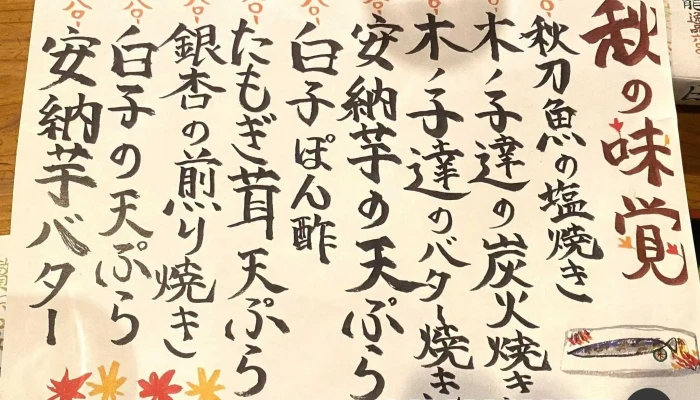 秋の味覚
秋刀魚の塩焼き
木ノ子達の炭火焼き
木ノ子達のバター焼き
安納芋の天ぷら
白子ぽん酢
たもぎ茸天ぷら
銀杏の煎り焼き
白子の天ぷら
安納芋バター